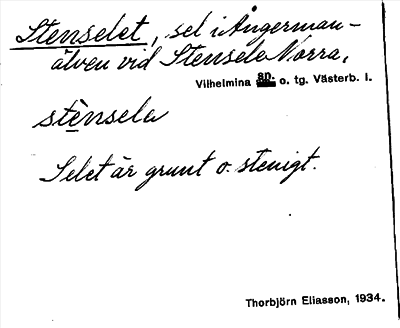 Stenselet, sel i Ångerman-
älven vid Stensele Norra,
Vilhelmina sn. o. tg. Västerb. l.
stènsela
Selet är grunt o. stenigt.
Thorbjörn Eliasson, 1934.